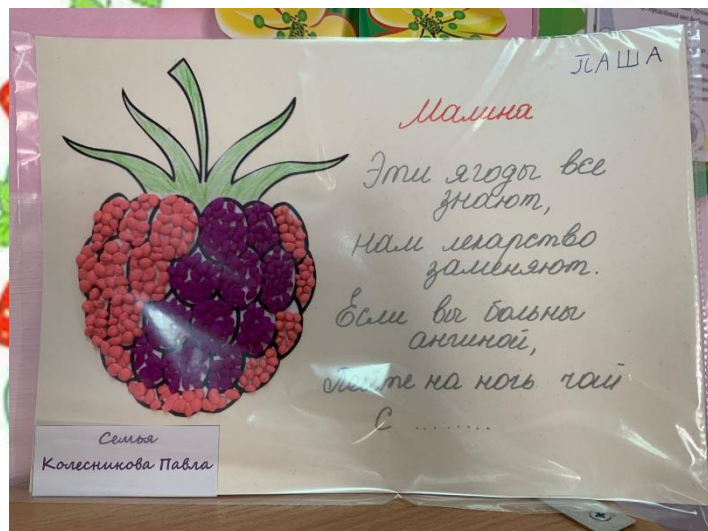 ПАША
Малина
Эти ягоды все
знают,
нам лекарство
заменяют.
Если вы больны
ангиной,
Пейте на ночь чай
с ........
Семья
Колесникова Павла